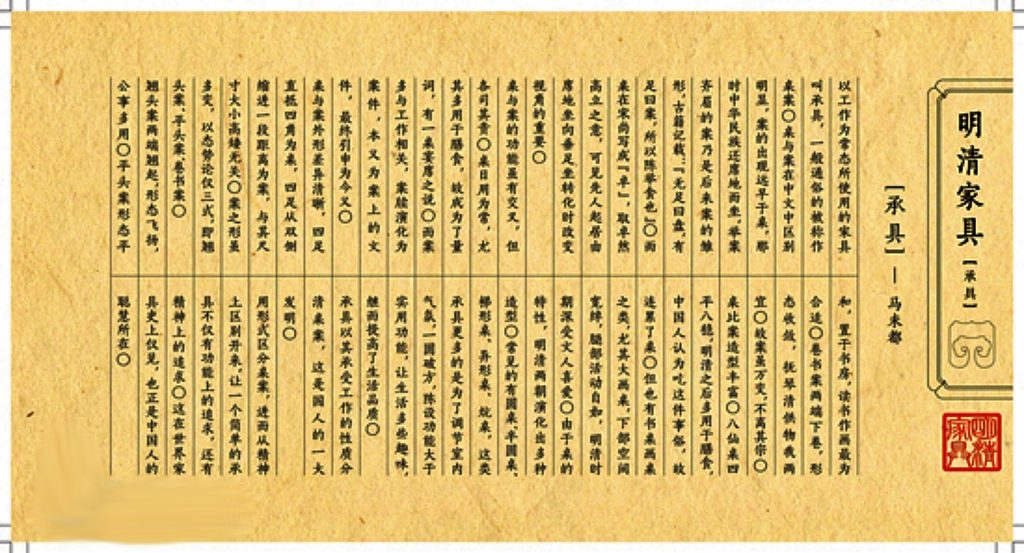 明清家具【承具】
明清家具
[承具]—马未都
以工作为常态所使用的家具
叫承具，一般通俗的被称作
桌案○桌与案在中文中区别
明显，案的出现远早于桌，那
时中华民族还席地而坐，举案
齐眉的案乃是后来案的雏
形，古籍记载：“无足曰盘，有
足曰案，所以陈举食也”○而
桌在宋尚写成“卓”，取卓然
高立之意，可见先人起居由
席地坐向垂足坐转化时改变
视角的重要○
桌与案的功能虽有交叉，但
各司其责○桌日用为常，尤
其多用于膳食，故成为了量
词，有一桌宴席之说○而案
多与工作相关，案牍演化为
案件，本义为案上的文
件，最终引申为今义○
桌与案外形差异清晰，四足
直抵四角为桌，四足从双侧
缩进一段距离为案，与其尺
寸大小高矮无关○案之形虽
多变，以态势论仅三式，即翘
头案、平头案、卷书案○
翘头案两端翘起，形态飞扬，
公事多用○平头案形态平
和，置于书房，读书作画最为
合适○卷书案两端下卷，形
态收敛，抚琴清供物我两
宜○故案虽万变，不离其宗○
桌比案造型丰富○八仙桌四
平八稳，明清之后多用于膳食，
中国人认为吃这件事俗，故
连累了桌○但也有书桌画桌
之类，尤其大画桌，下部空间
宽绰，腿部活动自如，明清时
期深受文人喜爱○由于桌的
特性，明清两朝演化出多种
造型○常见的有圆桌、半圆桌、
梯形桌、异形桌、炕桌，这类
承具更多的是为了调节室内
气氛，一圆破方，陈设功能大于
实用功能，让生活多些趣味，
继而提高了生活品质○
承具以其承受工作的性质分
清桌案，这是国人的一大
发明○
用形式区分桌案，进而从精神
上区别开来，让一个简单的承
具不仅有功能上的追求，还有
精神上的追求○这在世界家
具史上仅见，也正是中国人的
聪慧所在○